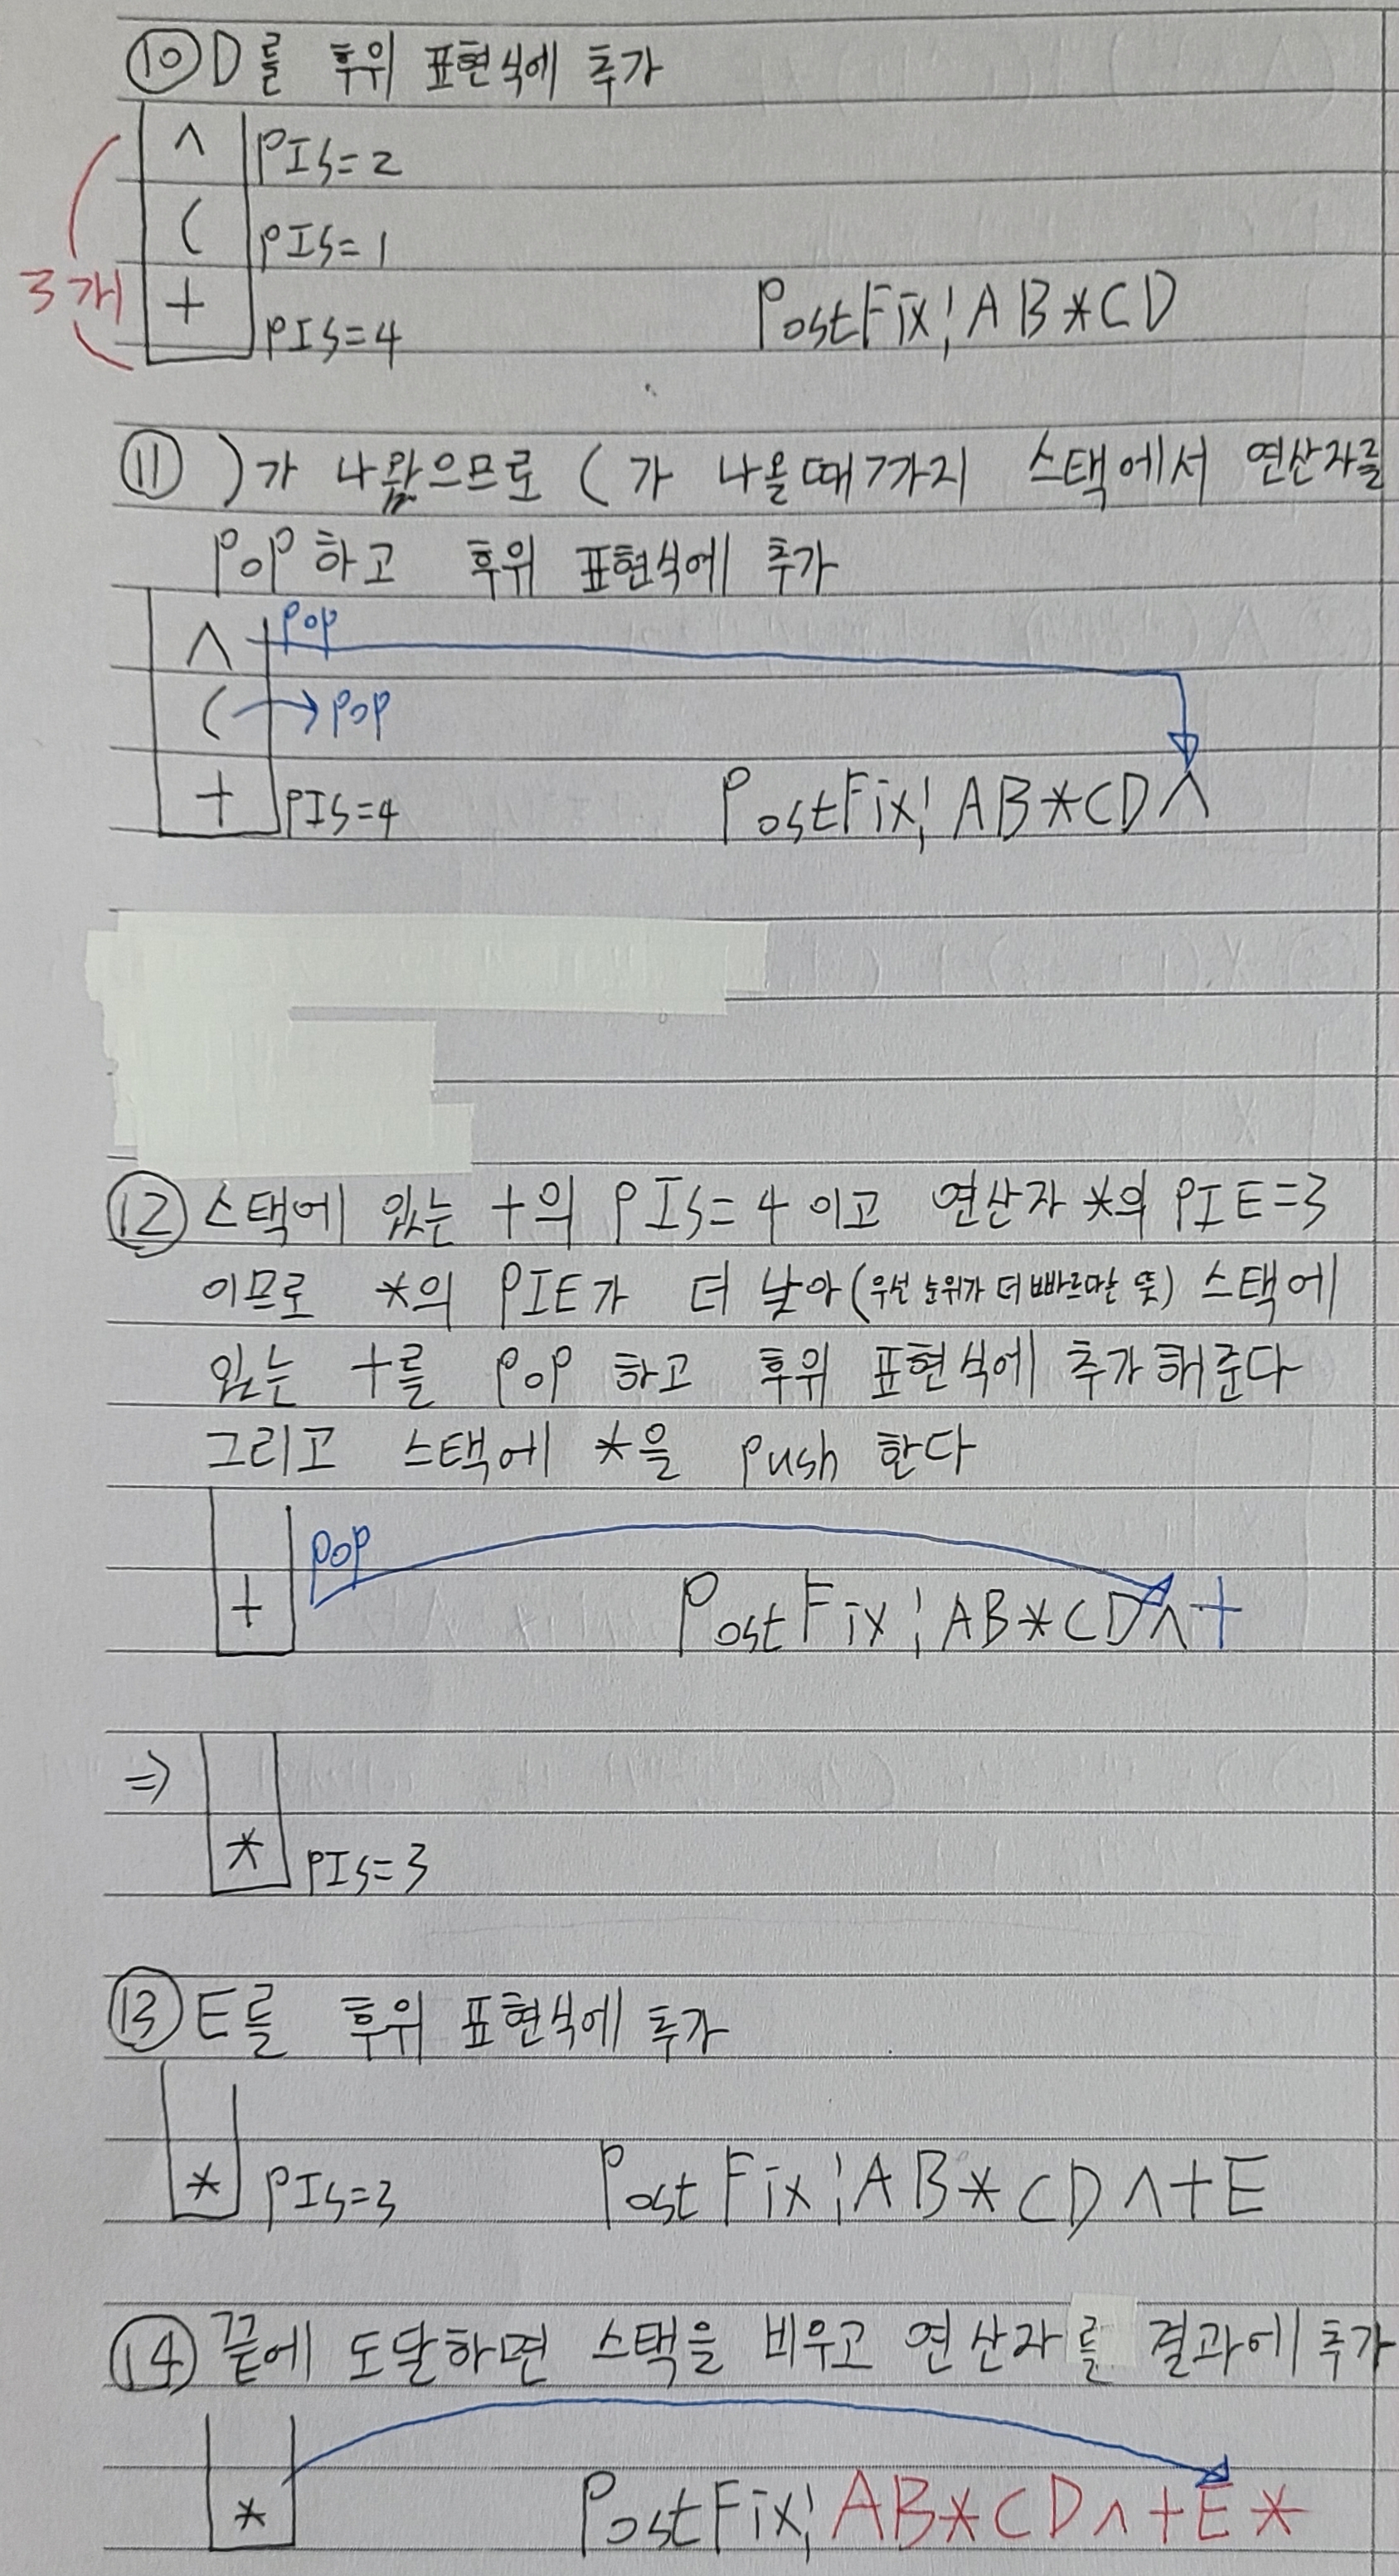 ⑩ D를 후위 표현식에 추가
∧ PIS=2
( PIS=1
3개
+ PIS=4
PostFix: AB*CD
⑪ )가 나왔으므로 (가 나올때까지 스택에서 연산자를
POP하고 후위 표현식에 추가
∧ POP
( → POP
+ PIS=4
PostFix: AB*CD∧
⑫ 스택에 있는 +의 PIS=4이고 연산자 *의 PIE=3
이므로 *의 PIE가 더 낮아(우선 순위가 더 빠르다는 뜻) 스택에
있는 +를 POP 하고 후위 표현식에 추가해준다
그리고 스택에 *을 push 한다
POP
+
PostFix: AB*CD∧+
⇒
* PIS=3
⑬ E를 후위 표현식에 추가
* PIS=3
PostFix: AB*CD∧+E
⑭ 끝에 도달하면 스택을 비우고 연산자를 결과에 추가
*
PostFix: AB*CD∧+E*